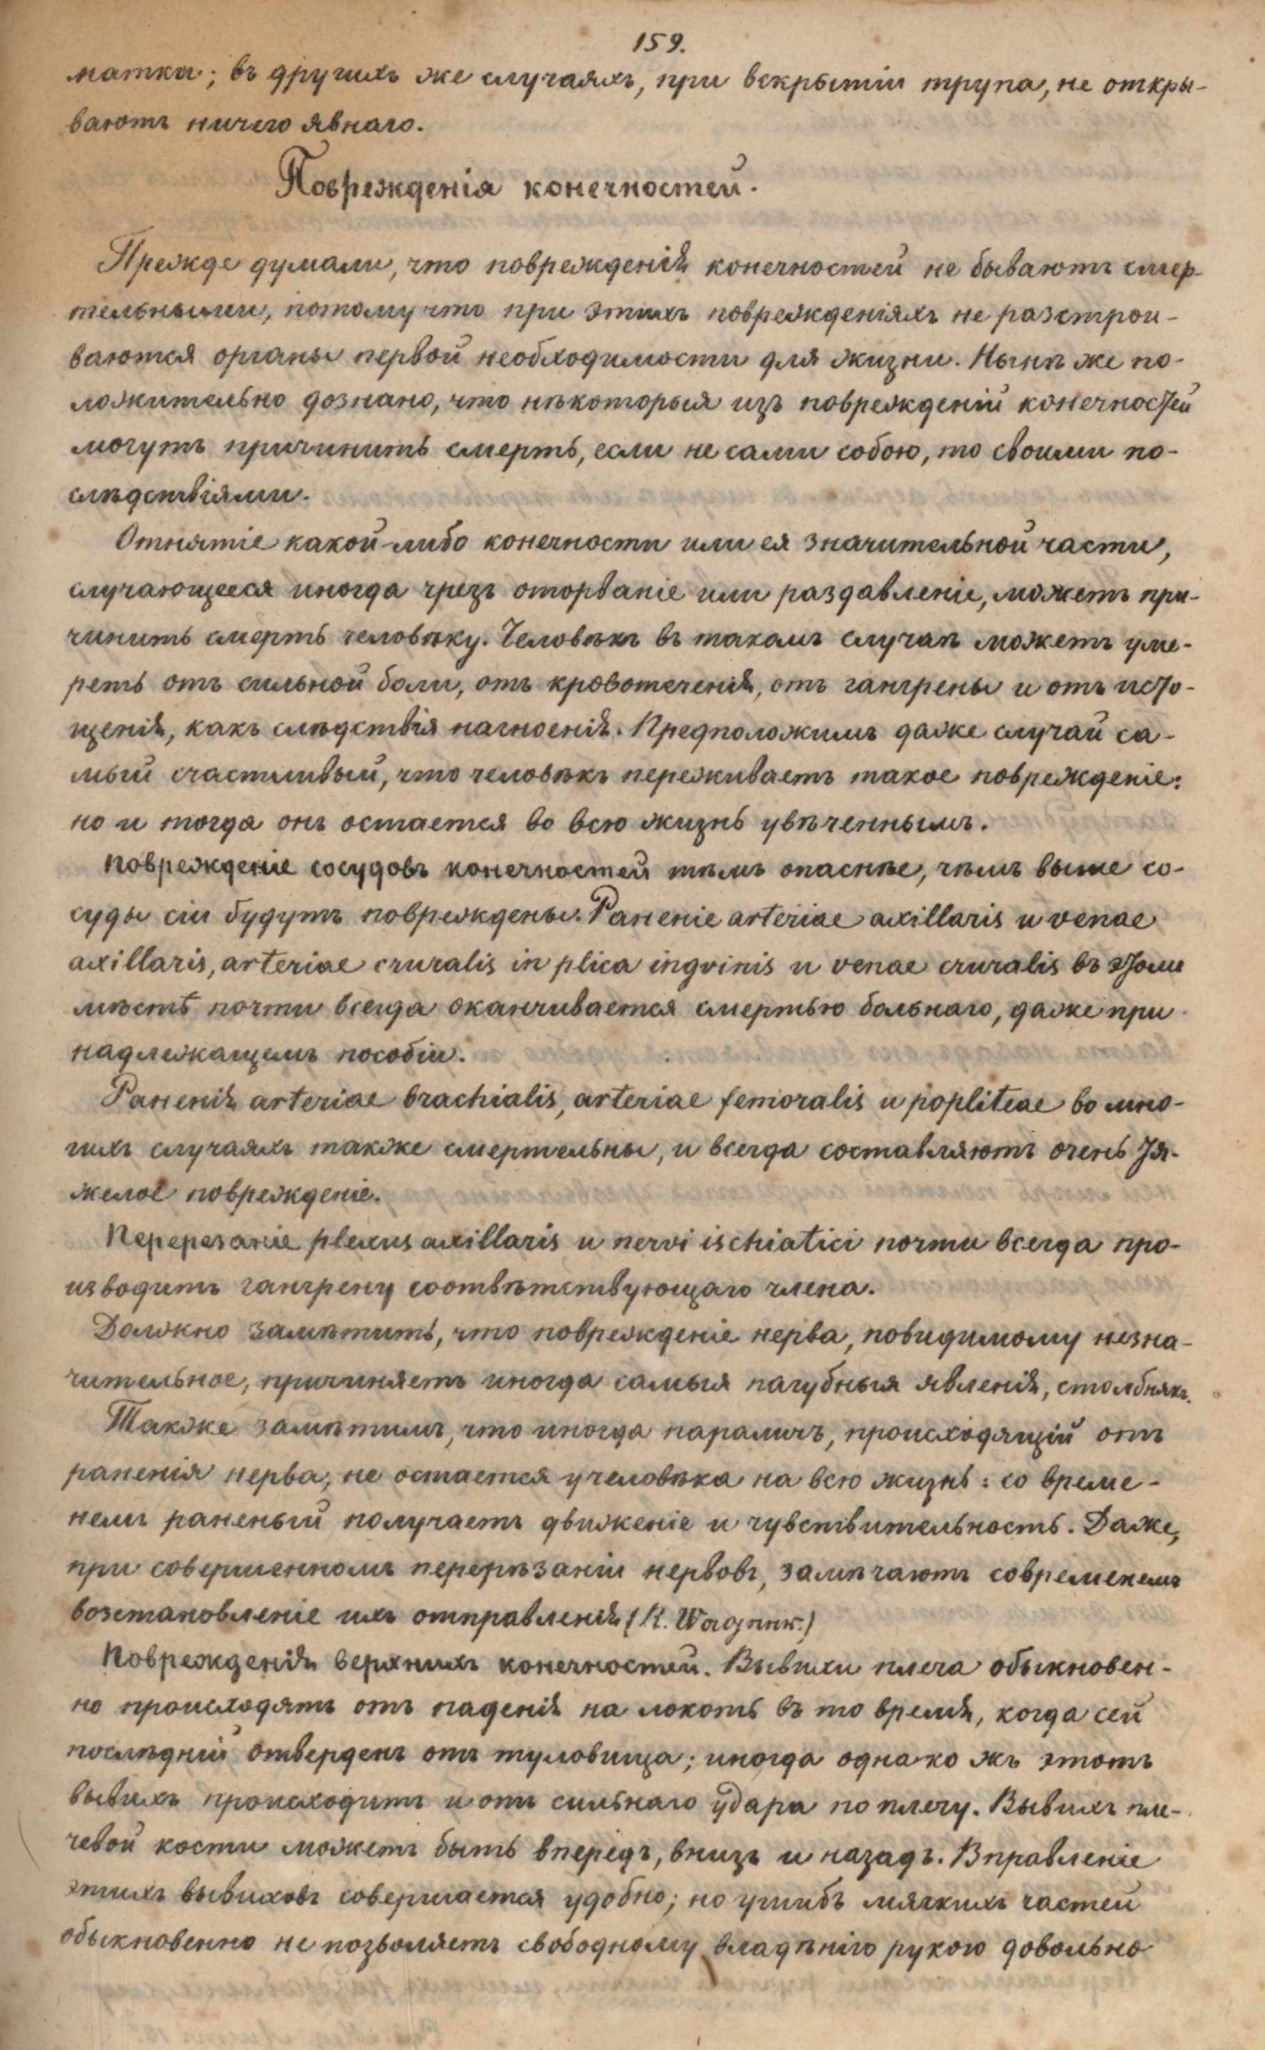 159.
матки; въ другихъ же случаяхъ, при вскрытіи трупа, не откры-
ваютъ ничего явнаго.
Поврежденія конечностей.
Прежде думали, что поврежденія конечностей не бываютъ смер-
тельными, потому что при этихъ поврежденіяхъ не разстрои-
ваются органы первой необходимости для жизни. Нынѣ же по-
ложительно дознано, что нѣкоторыя изъ поврежденій конечностей
могутъ причинить смерть, если не сами собою, то своими по-
слѣдствіями.
Отнятіе какой-либо конечности или ея значительной части,
случающееся иногда чрезъ оторваніе или раздавленіе, можетъ при-
чинить смерть человѣку. Человѣкъ въ такомъ случаѣ можетъ уме-
реть отъ сильной боли, отъ кровотеченія, отъ гангрены и отъ исто-
щенія, какъ слѣдствія нагноенія. Предположимъ даже случай са-
мый счастливый, что человѣкъ переживаетъ такое поврежденіе:
но и тогда онъ остается во всю жизнь увѣченнымъ.
Поврежденіе сосудовъ конечностей тѣмъ опаснѣе, чѣмъ выше со-
суды сіи будутъ повреждены. Раненіе arteriae axillaris и venae
axillaris, arteriae cruralis in plica ingvinis и venae cruralis въ этомъ
мѣстѣ почти всегда оканчивается смертью больнаго, даже при
надлежащемъ пособіи.
Раненія arteriae brachialis, arteriae femoralis и popliteae во мно-
гихъ случаяхъ также смертельны, и всегда составляютъ очень тя-
желое поврежденіе.
Перерезаніе plexus axillaris и nervi ischiatici почти всегда про-
изводитъ гангрену соотвѣтствующаго члена.
Должно замѣтить, что поврежденіе нерва, повидимому незна-
чительное, причиняетъ иногда самыя пагубныя явленія, столбнякъ.
Также замѣтимъ, что иногда параличъ, происходящій отъ
раненія нерва, не остается у человѣка на всю жизнь: со време-
немъ раненый получаетъ движеніе и чувствительность. Даже,
при совершенномъ перерѣзаніи нервовъ, замѣчаютъ современемъ
возстановленіе ихъ отправленія (R.
Поврежденія верхнихъ конечностей. Вывихи плеча обыкновен-
но происходятъ отъ паденія на локоть въ то время, когда сей
послѣдній отверденъ отъ туловища; иногда однако жъ этотъ
вывихъ происходитъ и отъ сильнаго удара по плечу. Вывихъ пле-
чевой кости можетъ быть впередъ, внизъ и назадъ. Вправленіе
этихъ вывиховъ совершается удобно; но ушибъ мягкихъ частей
обыкновенно не позволяетъ свободному владѣнію рукою довольно